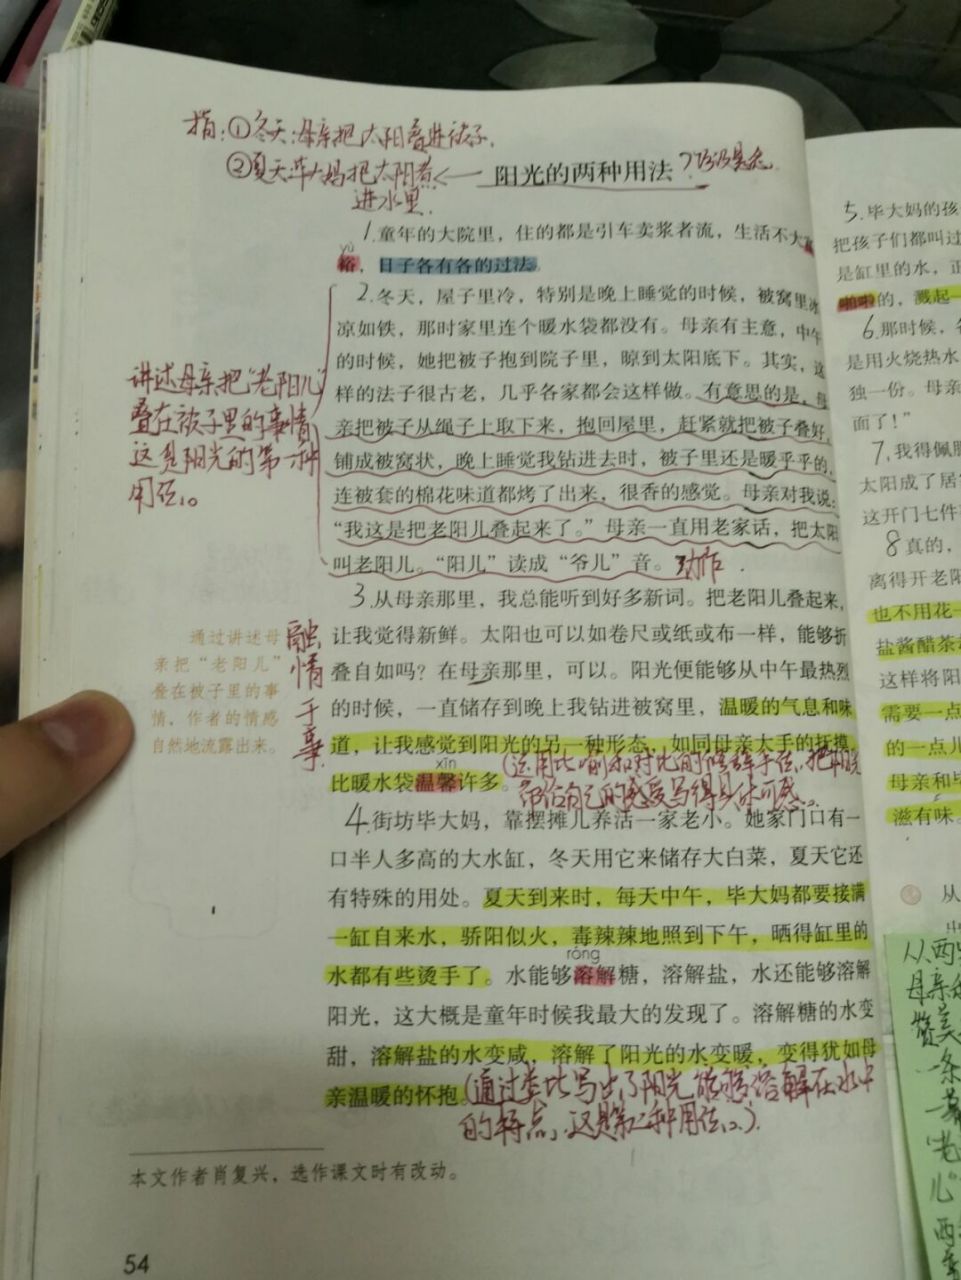 指：①冬天：母亲把太阳叠进被子。
②夏天毕大妈把太阳煮进水里。
阳光的两种用法？巧设悬念
1.童年的大院里，住的都是引车卖浆者流，生活不大
yù
裕，日子各有各的过法。
2.冬天，屋子里冷，特别是晚上睡觉的时候，被窝里冰
凉如铁，那时家里连个暖水袋都没有。母亲有主意，中午
的时候，她把被子抱到院子里，晾到太阳底下。其实，这
样的法子很古老，几乎各家都会这样做。有意思的是，母
亲把被子从绳子上取下来，抱回屋里，赶紧就把被子叠好，
铺成被窝状，晚上睡觉我钻进去时，被子里还是暖乎乎的，
连被套的棉花味道都烤了出来，很香的感觉。母亲对我说：
“我这是把老阳儿叠起来了。”母亲一直用老家话，把太阳
叫老阳儿。“阳儿”读成“爷儿”音。动作
讲述母亲把“老阳儿”
叠在被子里的事情
这是阳光的第一种
用法。
3.从母亲那里，我总能听到好多新词。把老阳儿叠起来，
让我觉得新鲜。太阳也可以如卷尺或纸或布一样，能够折
叠自如吗？在母亲那里，可以。阳光便能够从中午最热烈
的时候，一直储存到晚上我钻进被窝里，温暖的气息和味
道，让我感觉到阳光的另一种形态，如同母亲大手的抚摸，
xīn
比暖水袋温馨许多。（运用比喻和对比的修辞手法，把阳光
带给自己的感受写得具体可感。
通过讲述母
亲把“老阳儿”
叠在被子里的事
情，作者的情感
自然地流露出来。
融
情
于
事
4.街坊毕大妈，靠摆摊儿养活一家老小。她家门口有一
口半人多高的大水缸，冬天用它来储存大白菜，夏天它还
有特殊的用处。夏天到来时，每天中午，毕大妈都要接满
一缸自来水，骄阳似火，毒辣辣地照到下午，晒得缸里的
róng
水都有些烫手了。水能够溶解糖，溶解盐，水还能够溶解
阳光，这大概是童年时候我最大的发现了。溶解糖的水变
甜，溶解盐的水变咸，溶解了阳光的水变暖，变得犹如母
亲温暖的怀抱。（通过类比写出了阳光能够溶解在水中
的特点，这是第二种用法。）
本文作者肖复兴，选作课文时有改动。
54
5.毕大妈的孩
把孩子们都叫过
是缸里的水，正
啪啦的，溅起一
6.那时候，各
是用火烧热水
独一份。母亲
面了！”
7.我得佩服
太阳成了居家
这开门七件
8真的，
离得开老阳
也不用花一
盐酱醋茶
这样将阳
需要一点
的一点儿
母亲和毕
滋有味。
从
从两
母亲的
赞美
一条
一幕
“老
儿”
两